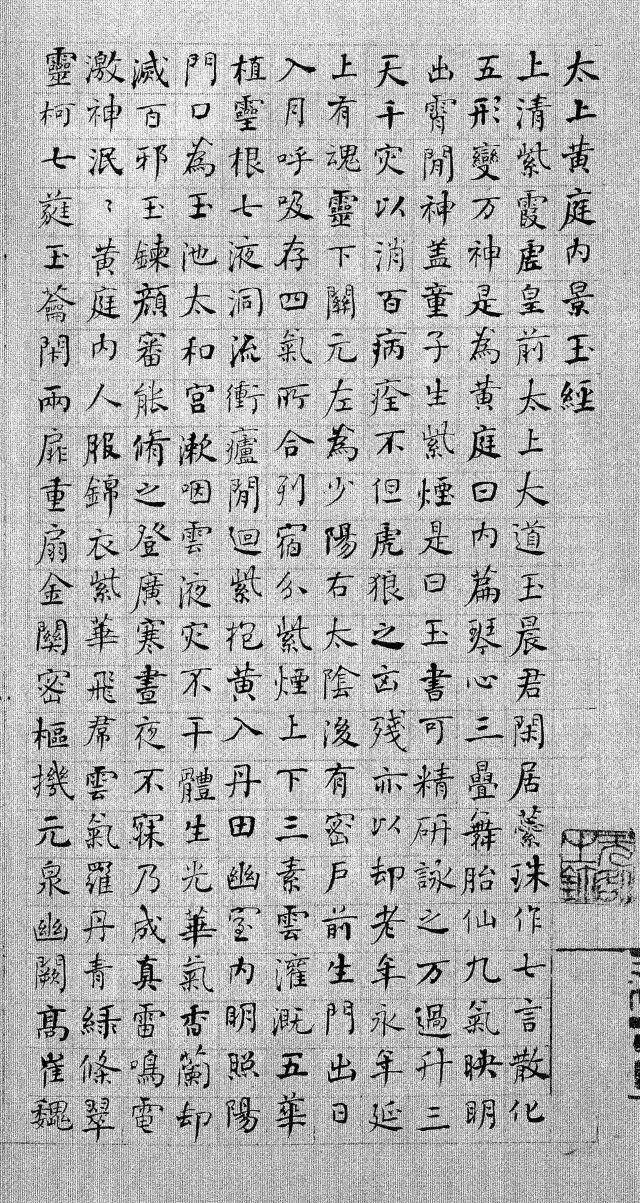 太上黄庭内景玉經
上清紫霞虛皇前太上大道玉晨君閑居蘂珠作七言散化
五形變万神是為黄庭曰内篇琴心三疊舞胎仙九氣映明
出霄閒神盖童子生紫煙是曰玉書可精研詠之万過升三
天千灾以消百病痊不但虎狼之㐫残亦以却老年永年延
上有魂靈下關元左為少陽右太陰後有密戶前生門出日
入月呼吸存四氣所合列宿分紫煙上下三素雲灌溉五華
植靈根七液洞流衝廬閒迴紫抱黄入丹田幽室内明照陽
門口為玉池太和宫漱咽雲液灾不干體生光華氣香蘭却
滅百邪玉鍊顔審能脩之登廣寒晝夜不寐乃成真雷鳴電
激神泯〻黄庭内人服錦衣紫華飛帬雲氣羅丹青緑條翠
靈柯七蕤玉籥閇兩扉重扇金關密樞機元泉幽闕髙崔巍